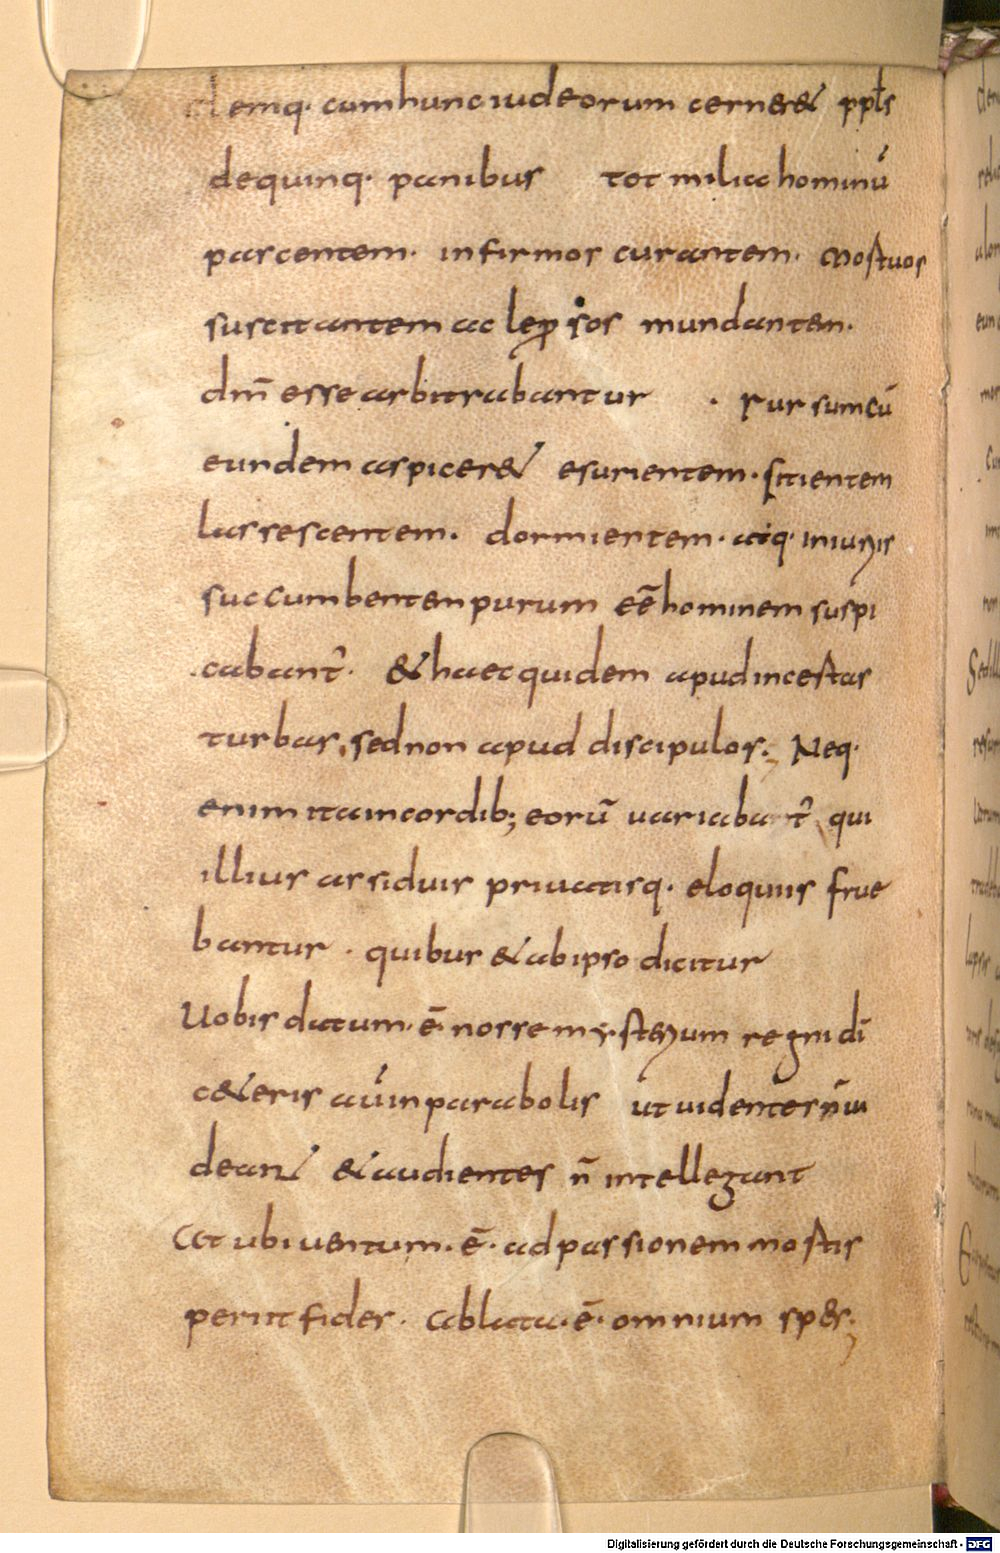 demq· cum hunc iudeorum cerneret ppłs
de quinq· panibus tot milia hominū
pascentem· infirmos curantem· mostuos
suscitantem ac leprosos mundantem·
dm̄ esse arbitrabantur · rursum cū
eundem aspiceret esurientem· sitientem
lassescentem· dormientem· atq· iniuriis
succumbentem purum eē hominem suspi
cabant᷑· & haec quidem apud incestas
turbas, sed non apud discipulos; Neq·
enim ita in cordib; eorū uariabant᷑ qui
illius assiduis priuatisq· eloquiis frue
bantur · quibus & ab ipso dicitur
Uobis datum· ē· nosse mysterium regni dī
ceteris aū in parabolis ut uidentes n̄ ui
deant & audientes n̄ intellegant
At ubi uentum· ē· ad passionem nostis
periit fides· ablata· ē· omnium spes;
Digitalisierung gefördert durch die Deutsche Forschungsgemeinschaft - DFG